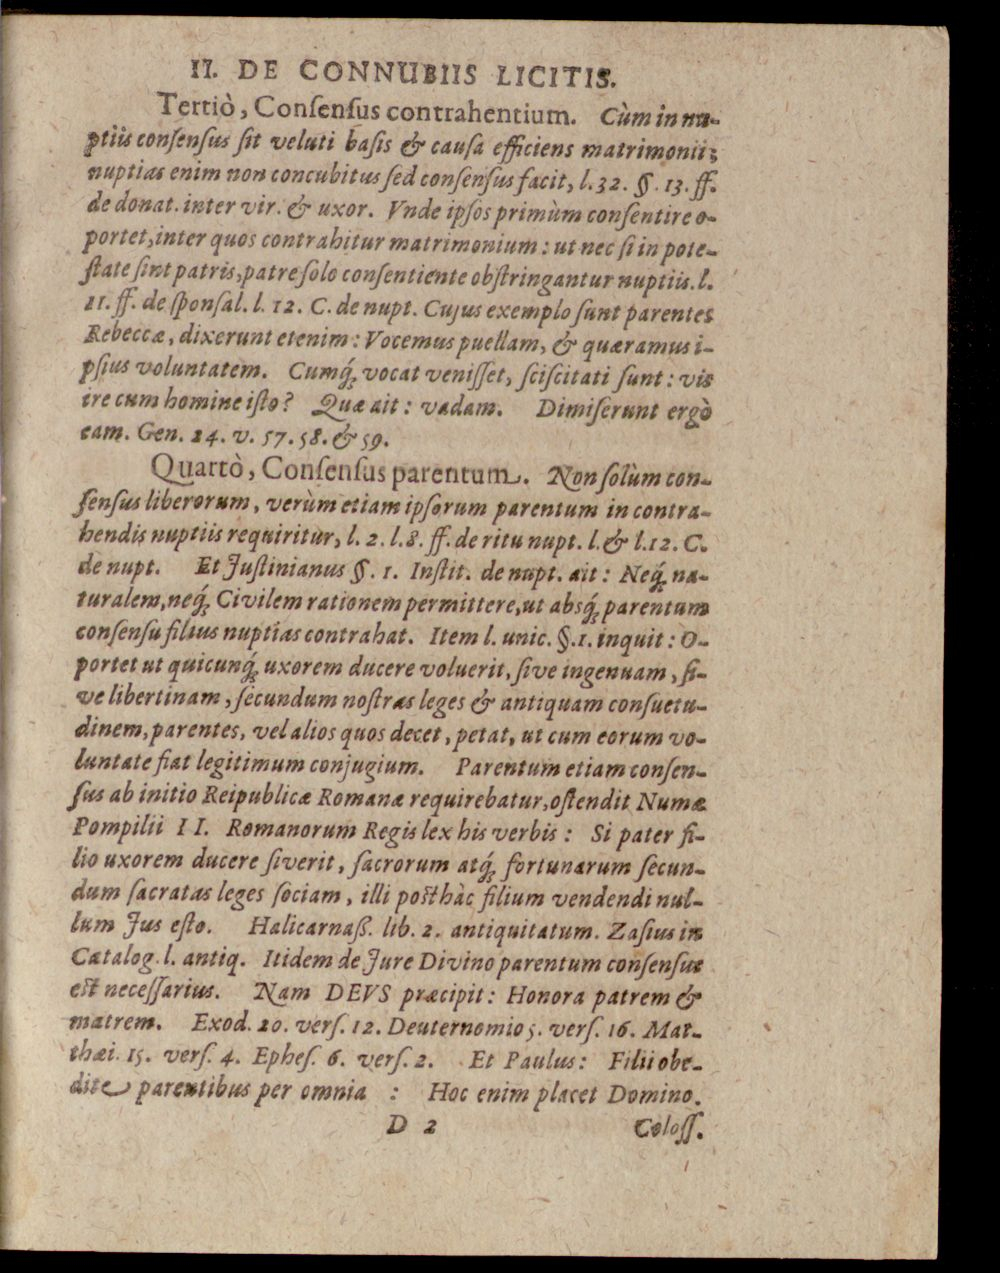 II. DE CONNUBIIS LICITIS.
Tertiò, Conſenſus contrahentium. Cùm in nu-
ptiis conſenſus ſit veluti baſis & cauſa efficiens matrimonii;
nuptias enim non concubitus ſed conſenſus facit, l. 32. §. 13. ff.
de donat. inter vir. & uxor. Vnde ipſos primùm conſentire o-
portet, inter quos contrahitur matrimonium: ut nec ſi in pote-
ſtate ſint patris, patre ſolo conſentiente obſtringantur nuptiis. l.
11. ff. de ſponſal. l. 12. C. de nupt. Cujus exemplo ſunt parentes
Rebeccæ, dixerunt etenim: Vocemus puellam, & quæramus i-
pſius voluntatem. Cumq́; vocat veniſſet, ſciſcitati ſunt: vis
ire cum homine iſto? Quæ ait: vadam. Dimiſerunt ergò
eam. Gen. 24. v. 57. 58. & 59.
Quartò, Conſenſus parentum. Non ſolùm con-
ſenſus liberorum, verùm etiam ipſorum parentum in contra-
hendis nuptiis requiritur, l. 2. l. 8. ff. de ritu nupt. l. & l. 12. C.
de nupt. Et Juſtinianus §. 1. Inſtit. de nupt. ait: Neq́; na-
turalem, neq́; Civilem rationem permittere, ut absq́; parentum
conſenſu filius nuptias contrahat. Item l. unic. §. 1. inquit: O-
portet ut quicunq́; uxorem ducere voluerit, ſive ingenuam, ſi-
ve libertinam, ſecundum noſtras leges & antiquam conſuetu-
dinem, parentes, vel alios quos decet, petat, ut cum eorum vo-
luntate fiat legitimum conjugium. Parentum etiam conſen-
ſus ab initio Reipublicæ Romanæ requirebatur, oſtendit Numæ
Pompilii II. Romanorum Regis lex his verbis: Si pater fi-
lio uxorem ducere ſiverit, ſacrorum atq́; fortunarum ſecun-
dum ſacratas leges ſociam, illi poſthàc filium vendendi nul-
lum Jus eſto. Halicarnaß. lib. 2. antiquitatum. Zaſius in
Catalog. l. antiq. Itidem de Jure Divino parentum conſenſus
eſt neceſſarius. Nam DEVS præcipit: Honora patrem &
matrem. Exod. 20. verſ. 12. Deuternomio 5. verſ. 16. Mat-
thæi. 15. verſ. 4. Epheſ. 6. verſ. 2. Et Paulus: Filii obe-
dite parentibus per omnia : Hoc enim placet Domino.
D 2 Coloſſ.